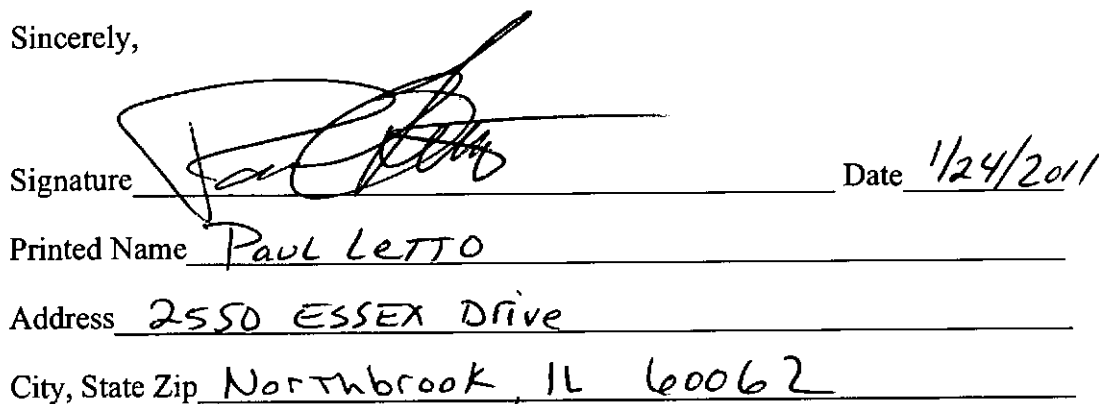 Sincerely,
Signature Date 1/24/2011
Printed Name Paul Letto
Address 2550 ESSEX Drive
City, State Zip Northbrook, IL 60062